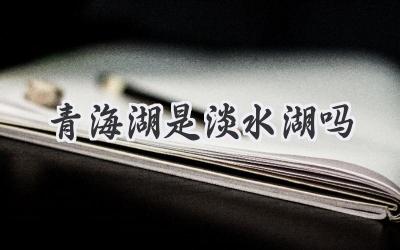 青海湖是淡水湖吗